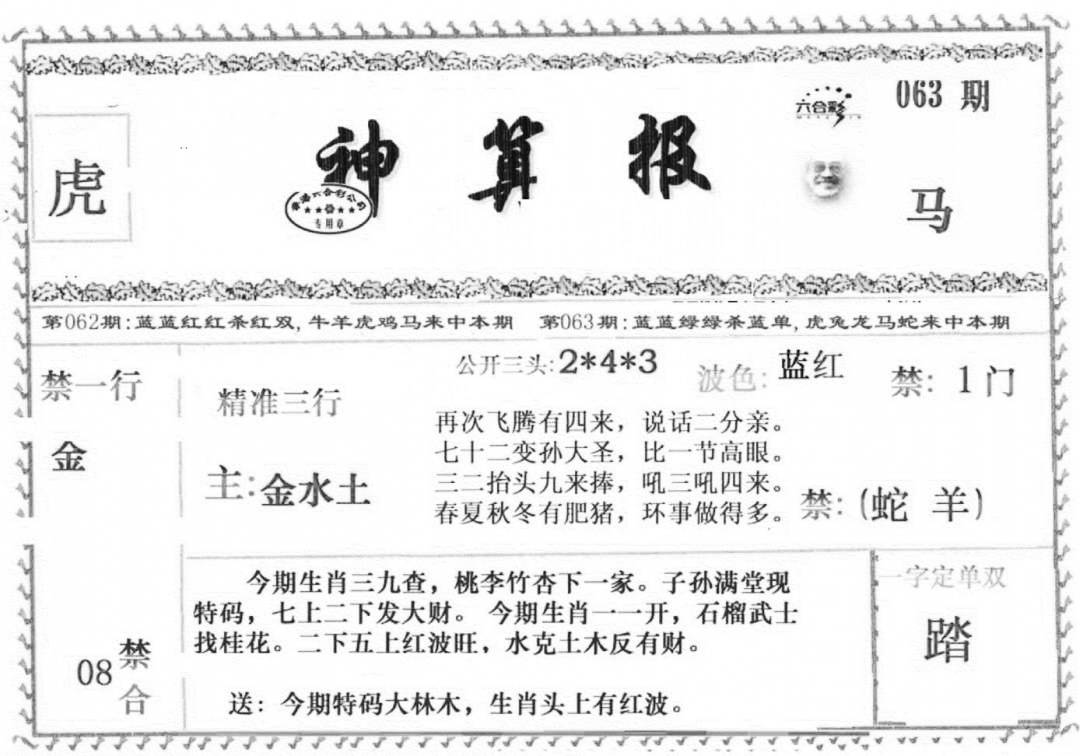 063 期
六合彩
虎
神算报
香港六合彩公司
专用章
马
第062期:蓝蓝红红杀红双,牛羊虎鸡马来中本期 第063期:蓝蓝绿绿杀蓝单,虎兔龙马蛇来中本期
禁一行
金
精准三行
主:金水土
公开三头:2*4*3
波色:蓝红
禁:1门
再次飞腾有四来，说话二分亲。
七十二变孙大圣，比一节高眼。
三二抬头九来捧，吼三吼四来。
春夏秋冬有肥猪，环事做得多。
禁:(蛇 羊)
08禁合
今期生肖三九查，桃李竹杏下一家。子孙满堂现
特码，七上二下发大财。 今期生肖一一开，石榴武士
找桂花。二下五上红波旺，水克土木反有财。
送：今期特码大林木，生肖头上有红波。
一字定单双
踏